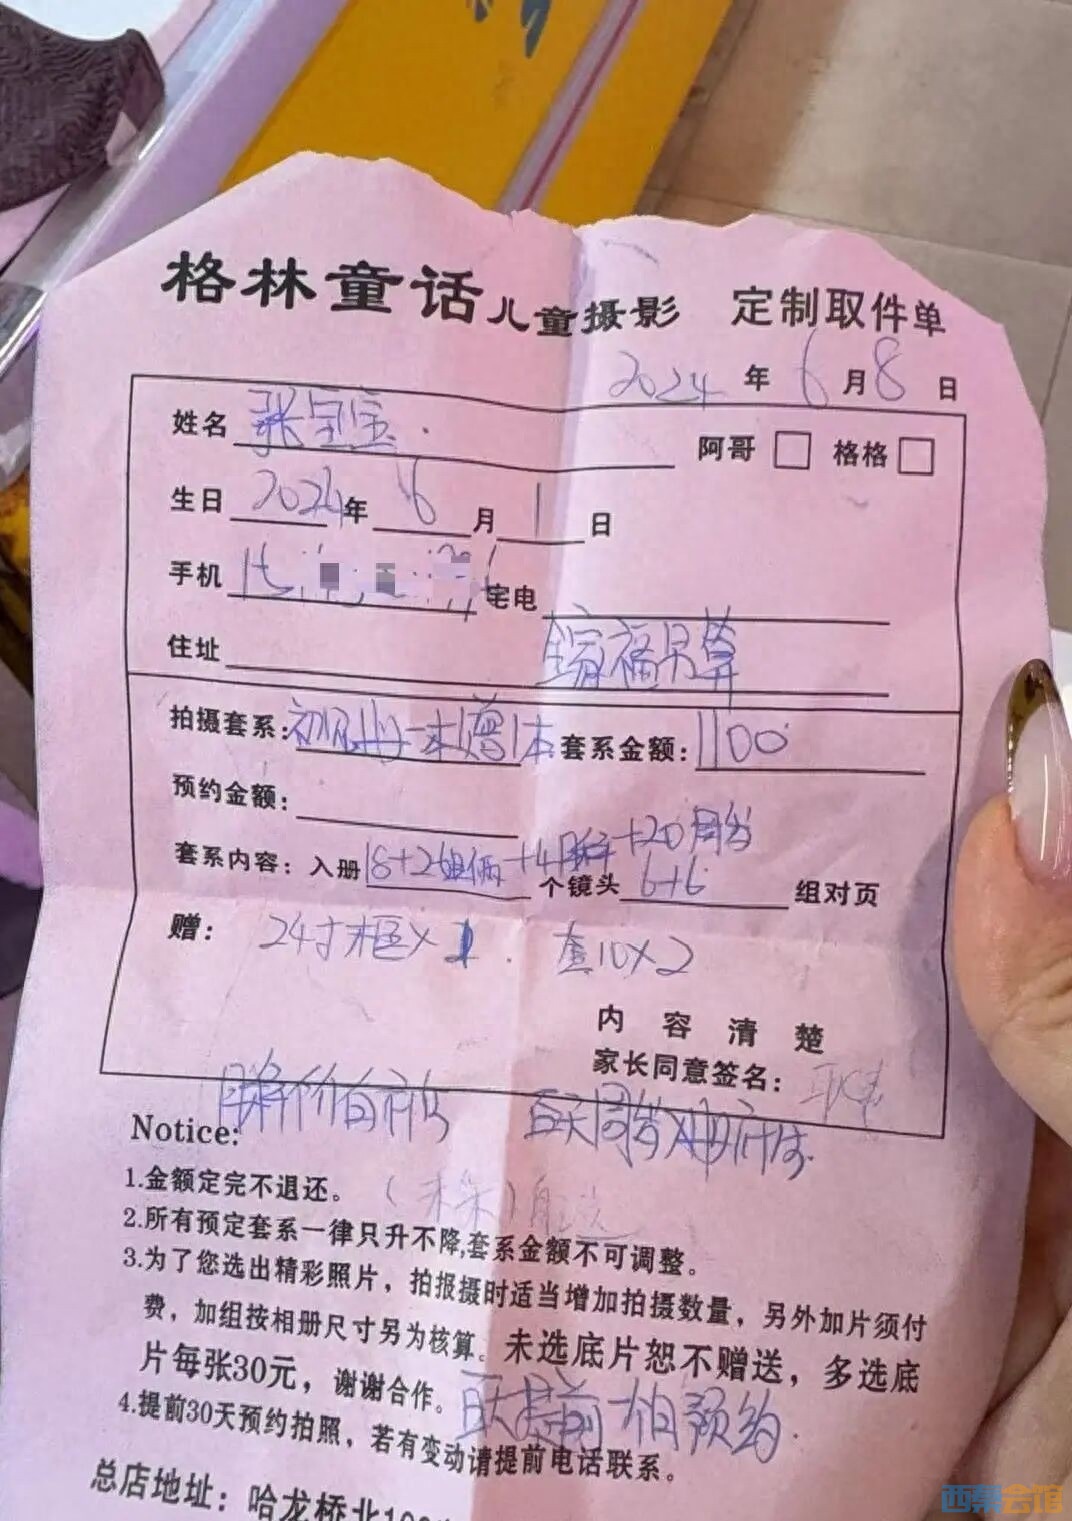 格林童话儿童摄影 定制取件单
2024年6月8日
姓名 张宝宝 阿哥 格格
生日 2024年6月1日
手机 宅电
住址 全家福另算
拍摄套系: 一本赠1本 套系金额: 1100
预约金额:
套系内容: 入册 18+2 +4 +20周岁 个镜头 6+6 组对页
赠: 24寸框×1 10×2
内容清楚
家长同意签名:
百天周岁
Notice:
1.金额定完不退还。
2.所有预定套系一律只升不降,套系金额不可调整。
3.为了您选出精彩照片，拍报摄时适当增加拍摄数量，另外加片须付
费，加组按相册尺寸另为核算。未选底片恕不赠送，多选底
片每张30元，谢谢合作。
百天提前一周预约.
4.提前30天预约拍照，若有变动请提前电话联系。
总店地址：哈龙桥北
西祠会馆